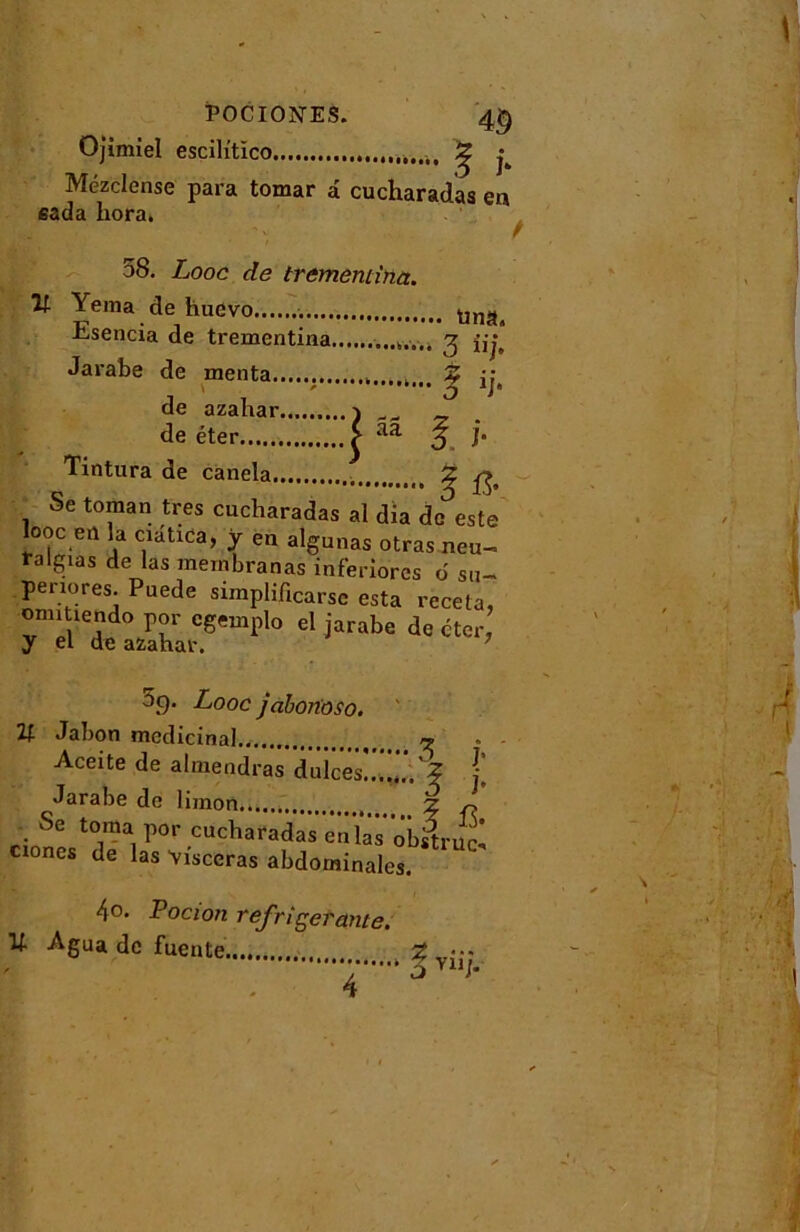 POCIONES. 49
Ojimiel escilítico........................ ℥ j.
Mézclense para tomar á cucharadas en
cada hora.
38. Looc de trementina.
♃ Yema de huevo............................ una.
Esencia de trementina............... ʒ iij.
Jarabe de menta........................ ℥ ij.
de azahar.......... } aa ℥ j.
de éter..............
Tintura de canela..................... ℥ ß.
Se toman tres cucharadas al dia de este
looc en la ciática, y en algunas otras neu-
ralgias de las membranas inferiores ó su-
periores. Puede simplificarse esta receta,
omitiendo por egemplo el jarabe de éter,
y el de azahar.
39. Looc jabonoso.
♃ Jabon medicinal........................ ʒ j.
Aceite de almendras dulces....... ℥ j.
Jarabe de limon........................ ℥ ß.
Se toma por cucharadas en las obstruc-
ciones de las visceras abdominales.
40. Pocion refrigerante.
♃ Agua de fuente........................ ℥ viij.
4